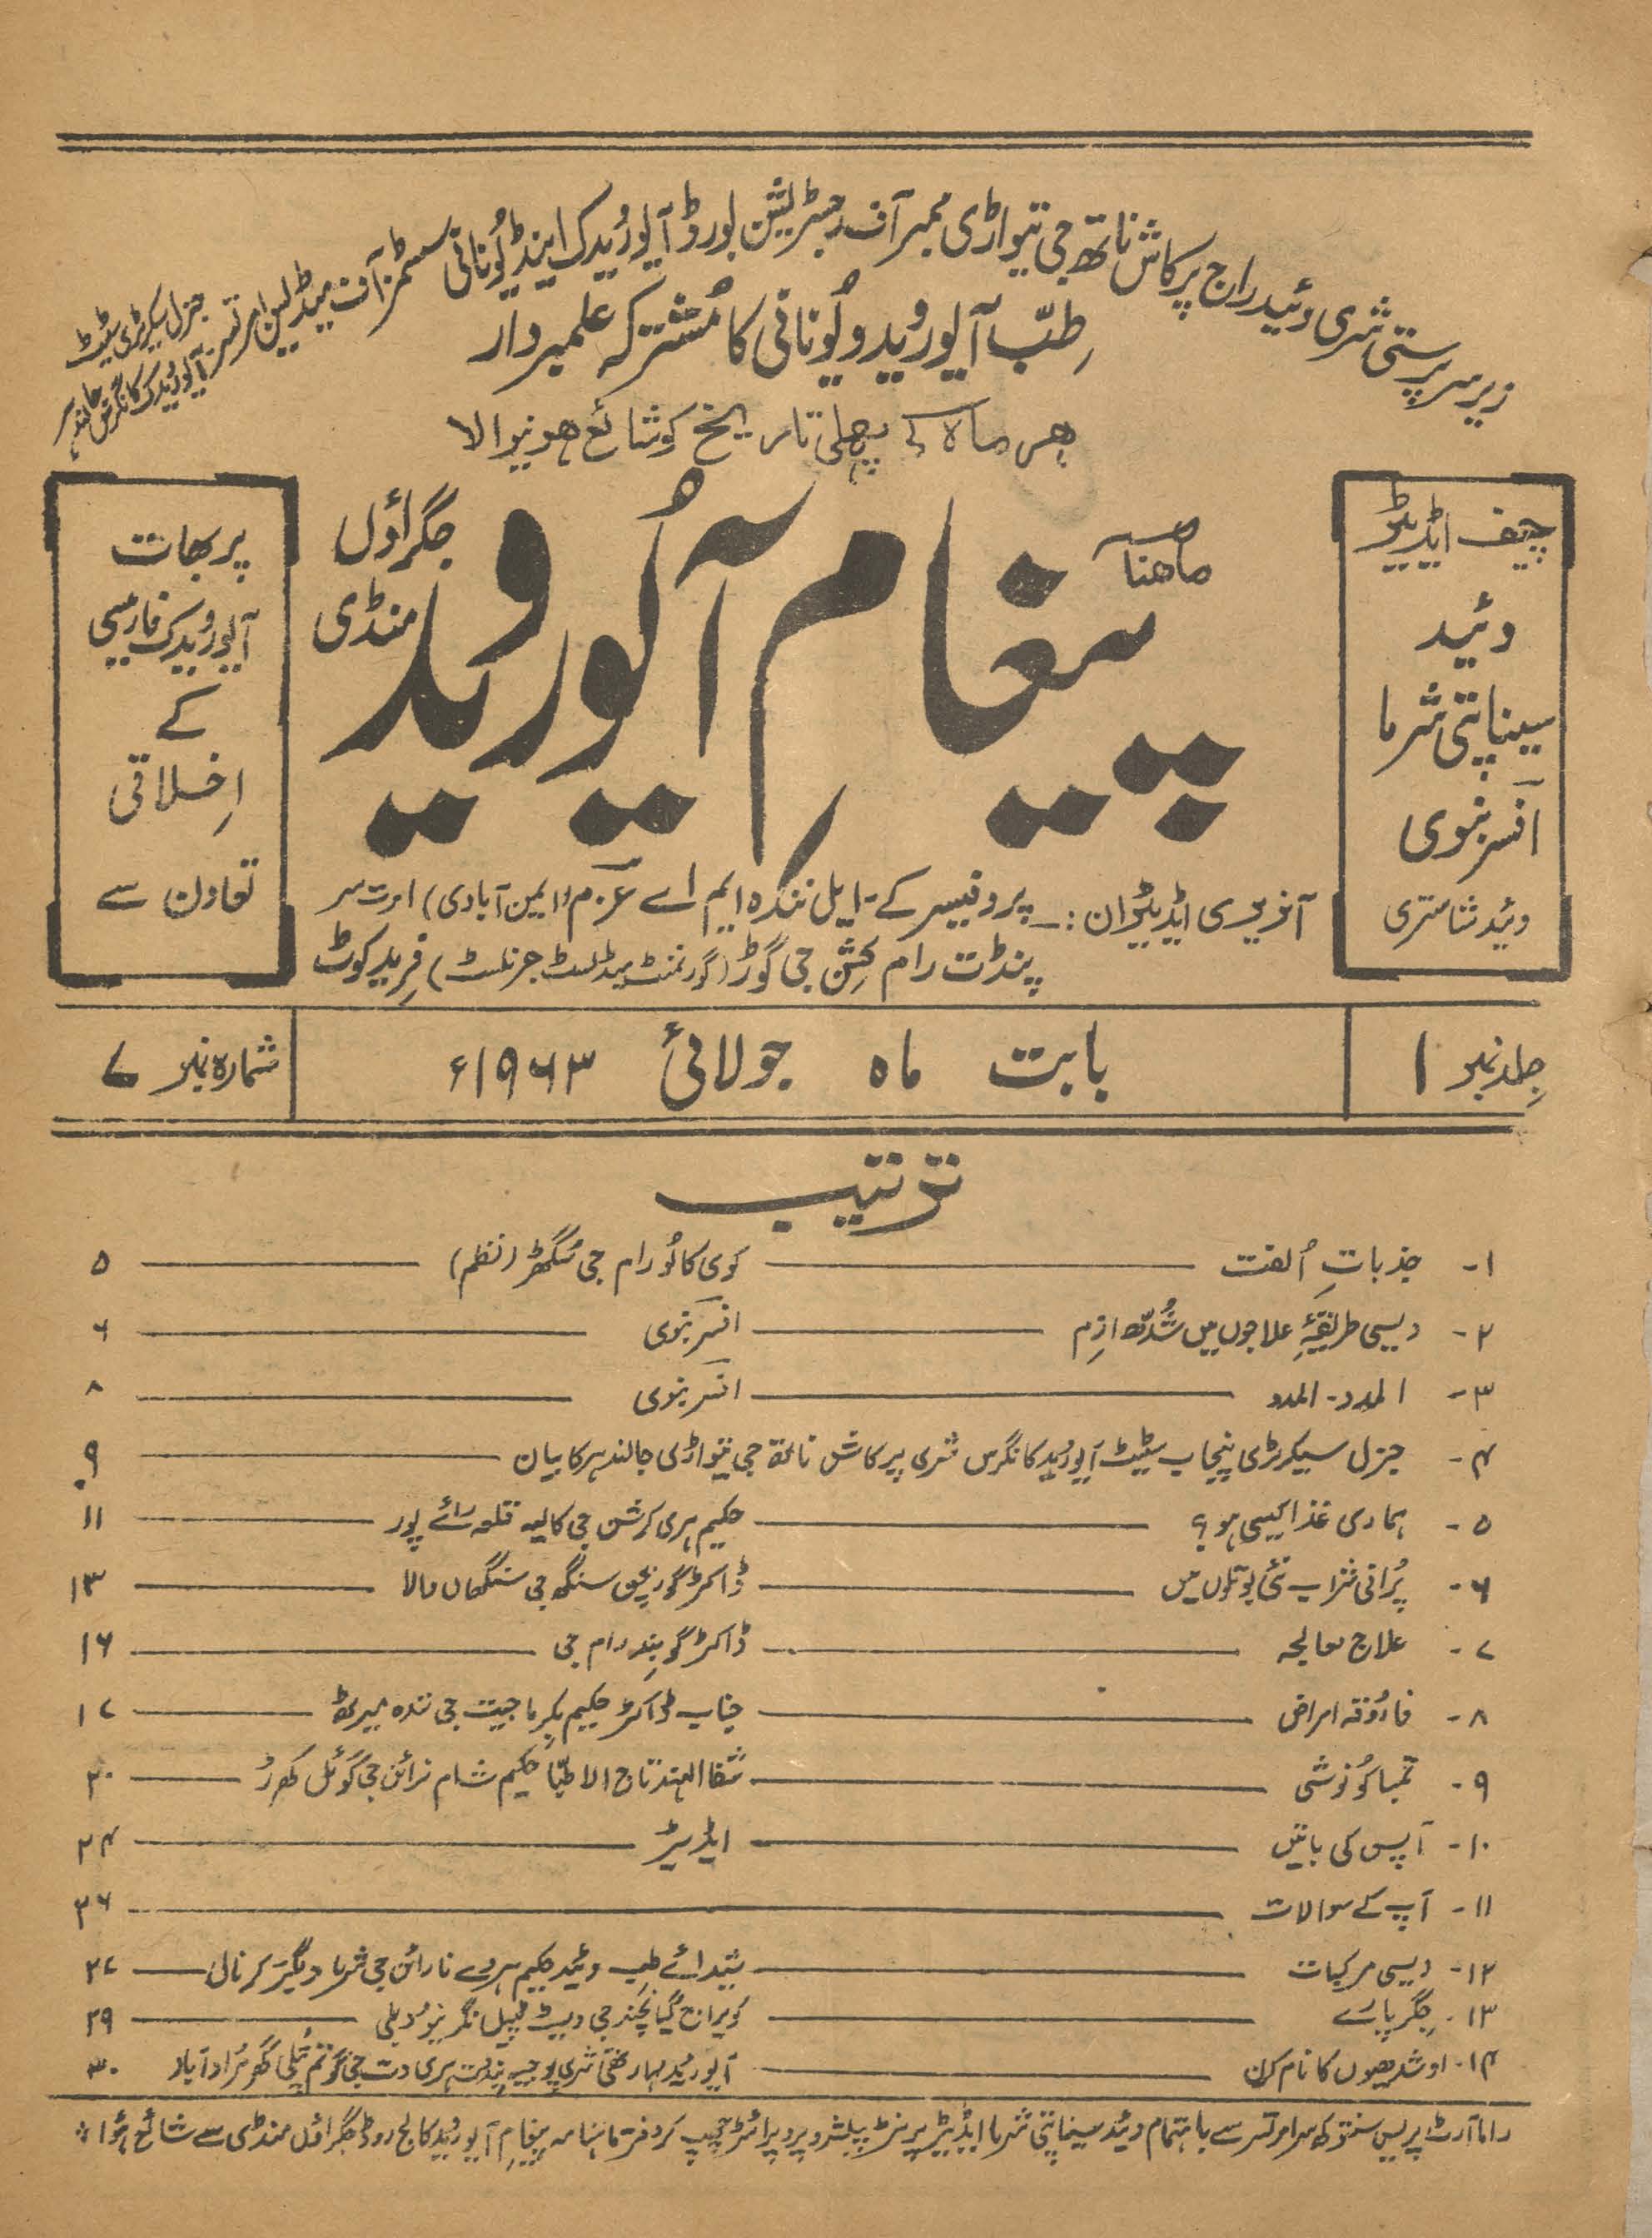 زیر سرپرستی شری وئید راج پرکاش ناتھ جی تیواڑی ممبر آف رجسٹریشن بورڈ آیورویدک اینڈ یونانی سسٹمز آف میڈیسن امرتسر
جنرل سیکرٹری سٹیٹ آیورویدک کانگرس جالندہر
طِبّ آیوروید و یُونانی کا مُشترکہ علمبردار
ہر ماہ کی پہلی تاریخ کو شائع ہونیوالا
چیف ایڈیٹر
وئید
سیناپتی شرما
افسر بنوی
وئید شاستری
ماہنامہ
پیغام آیوروید
جگراؤں
منڈی
پربھات
آیورویدک فارمیسی
کے
اِخلاقی
تعاون سے
آنریری ایڈیٹران :۔ پروفیسر کے۔ ایل نندہ ایم اے عزم (ایمن آبادی) امرت سر
پنڈت رام کِشن جی گوڑ (گورنمنٹ پیڈلسٹ جرنلسٹ) فرید کوٹ
جلد نمبر ۱
بابت ماہ جولائی ۱۹۶۳ء
شمارہ نمبر ۷
ترتیب
۱- جذباتِ اُلفت کوی کالُو رام جی سُگھڑ (نظم) ۵
۲- دیسی طریقۂ علاجوں میں شُدّھ ازم افسر بنوی ۶
۳- المدد۔ المدد افسر بنوی ۸
۴- جنرل سیکرٹری پنجاب سٹیٹ آیوروید کانگرس شری پرکاش ناتھ جی تیواڑی جالندہر کا بیان ۹
۵- ہماری غذا کیسی ہو؟ حکیم ہری کرشن جی کالیہ قلعہ رائے پور ۱۱
۶- پُرانی شراب نئی بوتلوں میں ڈاکٹر گوربچن سنگھ جی سنگھاں والا ۱۳
۷- علاج معالجہ ڈاکٹر گوبند رام جی ۱۶
۸- فاروُقہ امراض جناب ڈاکٹر حکیم بکرماجیت جی نندہ میرٹھ ۱۷
۹- تمباکو نوشی شفا الہند تاج الاطبّا حکیم شام نرائن جی گوئل کھرڑ ۲۰
۱۰- آپس کی باتیں ایڈیٹر ۲۴
۱۱- آپ کے سوالات ۲۶
۱۲- دیسی مرکبات شیدائے طِب وئید حکیم ہردے نارائن جی شرما دِیگیر کرنال ۲۷
۱۳- جگر پارے کویراج گیانچند جی ویسٹ پٹیل نگر نیو دہلی ۲۹
۱۴- اوشدھیوں کا نام کرن آیوروید مہارتھی شری پوجیہ پنڈت ہری دت جی گوتم تُلی گھر مُراد آباد ۳۰
راما آرٹ پریس سنتوکھ سر امرتسر سے باہتمام وئید سیناپتی شرما ایڈیٹر پرنٹر پبلشر و پروپرائٹر چھپ کر دفتر ماہنامہ پیغامِ آیوروید کالج روڈ جگراؤں منڈی سے شائع ہُوا: